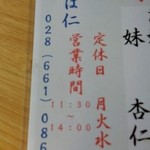 妹
杏仁
定休日 月火水
営業時間
11:30
~
14:00
仁
028(661)086